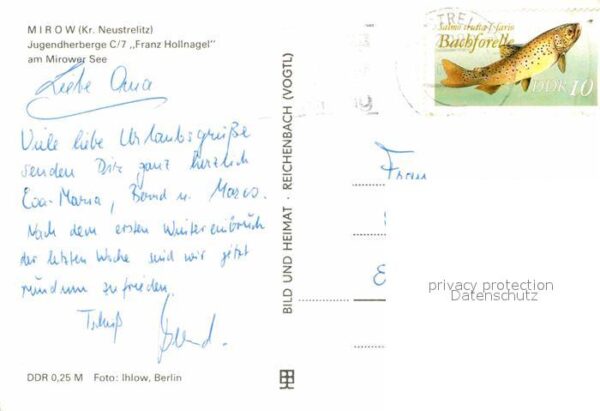 M I R O W (Kr. Neustrelitz)
Jugendherberge C/7 „Franz Hollnagel"
am Mirower See
Liebe Oma
Viele liebe Urlaubsgrüße
senden Dir ganz herzlich
Eva-Maria, Bernd u. Marco.
Nach dem ersten Wintereinbruch
der letzten Woche sind wir jetzt
rundum zufrieden.
Tschüß
Bernd.
DDR 0,25 M Foto: Ihlow, Berlin
BILD UND HEIMAT · REICHENBACH (VOGTL)
Salmo trutta f. fario
Bachforelle
DDR 10
Frau
privacy protection
Datenschutz